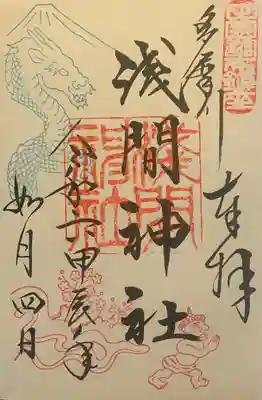 多摩川
奉拝
浅間神社
令和六甲辰年
如月四日
淺間神社